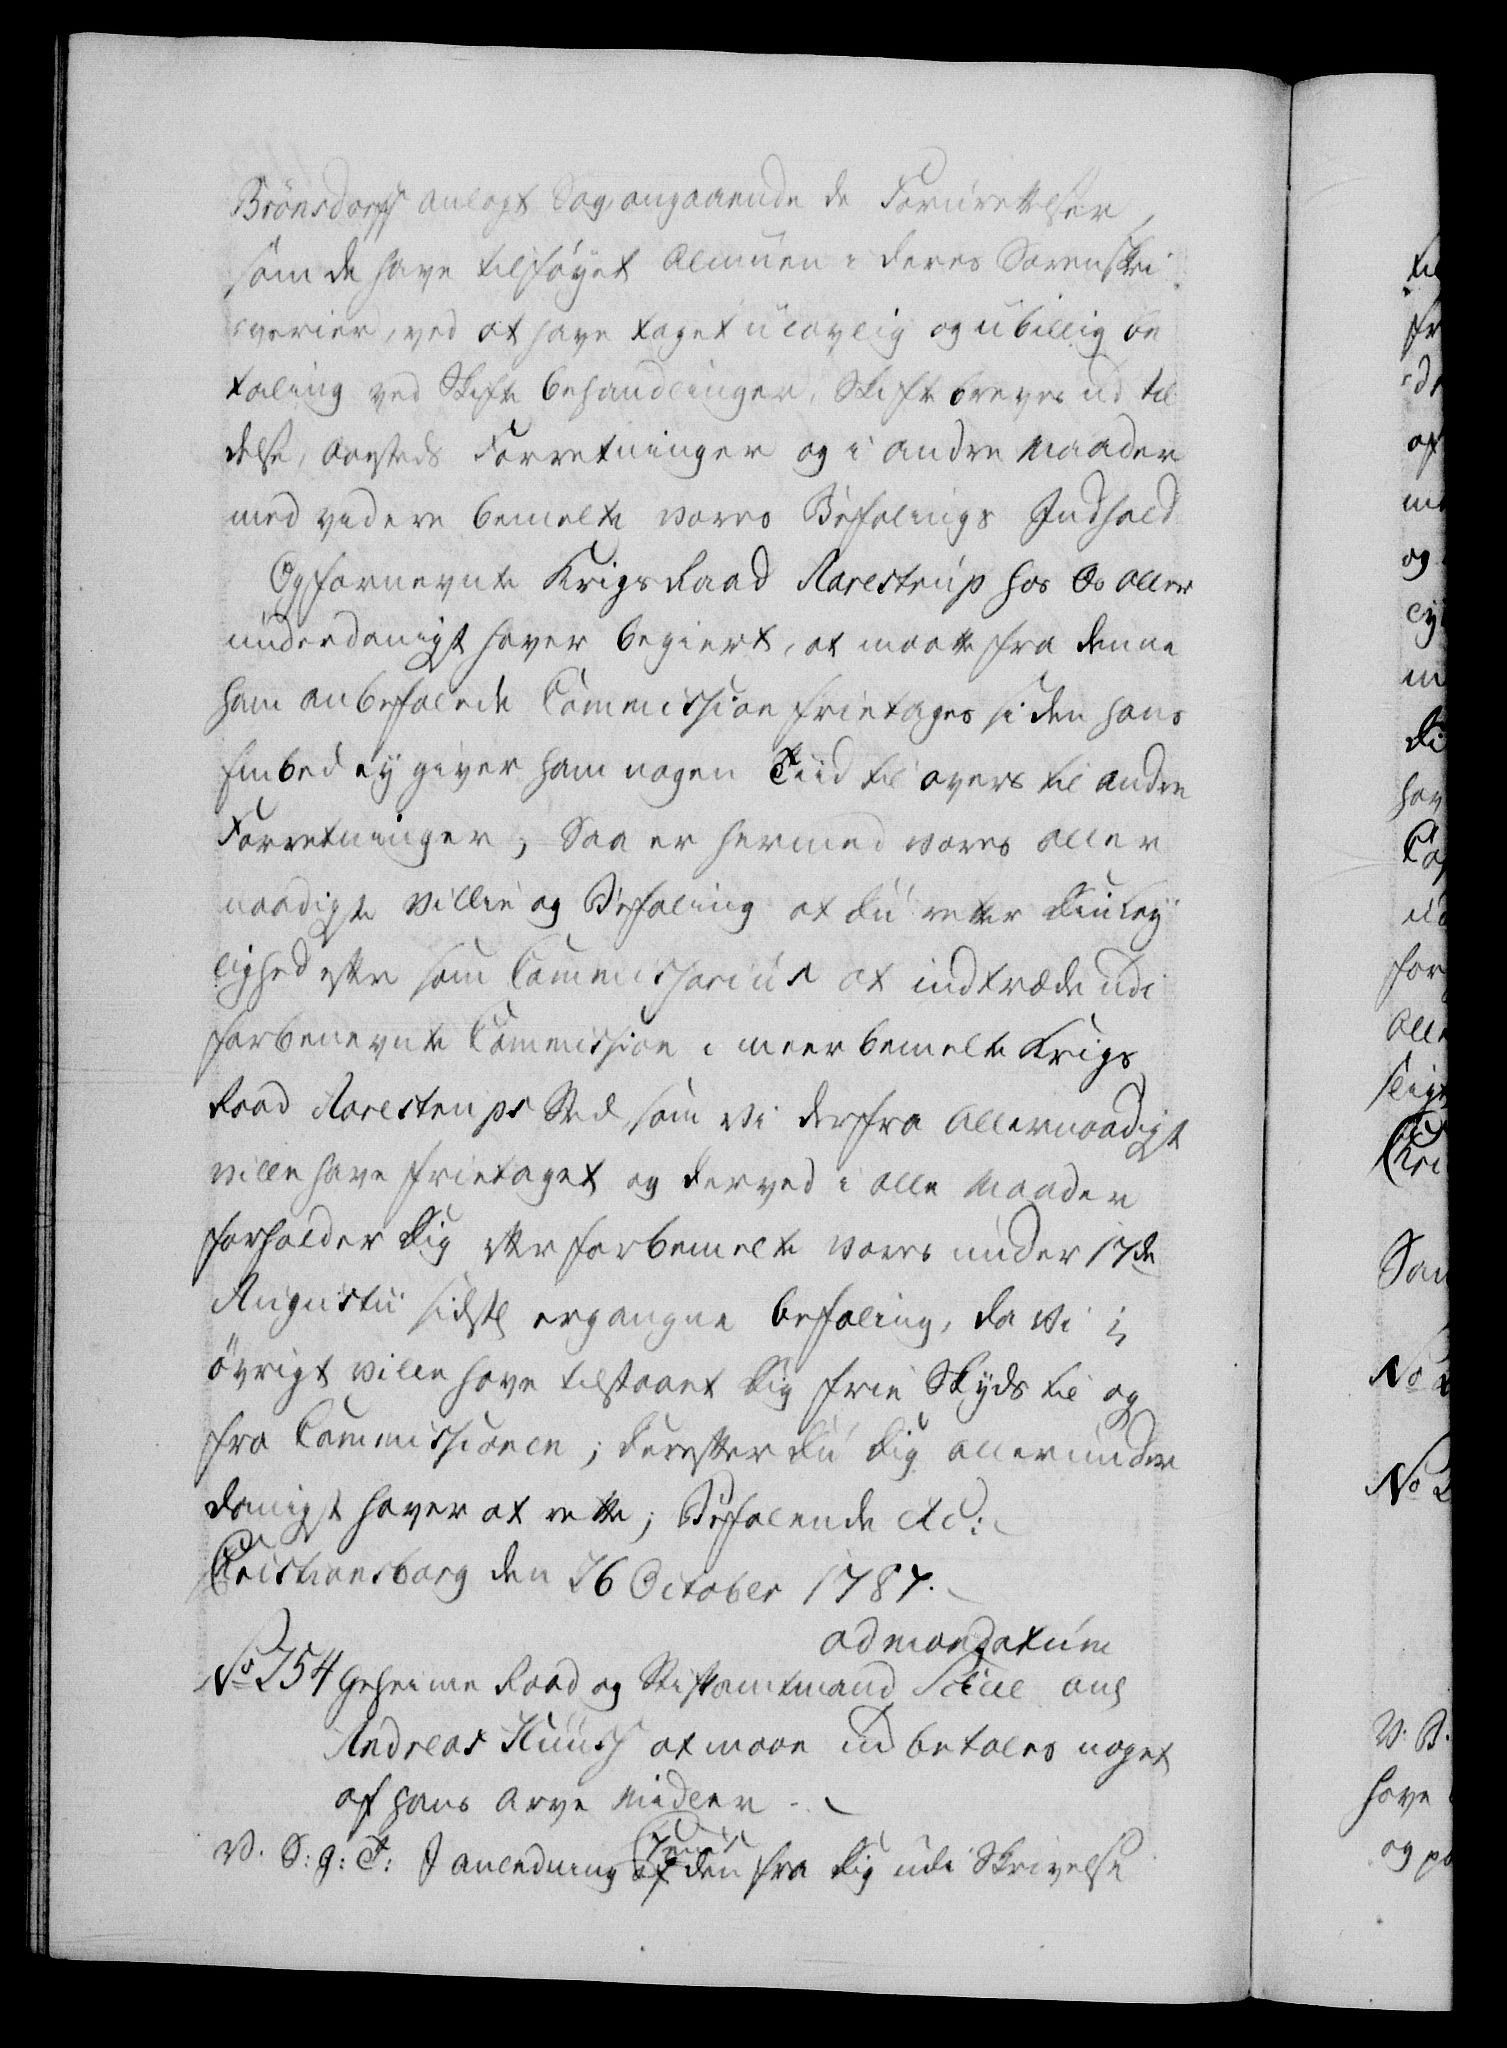 Brönsdorff anlagt Sag angaaende de Forurettelser,
som de have tilföyet Almuen i deres Sorenskri
verier, ved at have taget ulovlig og ubillig be
taling ved Skifte behandlinger, Skifte breves ud til
delse, Aasteds Forretninger og i andre Maader
med videre bemelte vores Befalings Indhold
Og fornevnte Krigs Raad Aarestrup hos Os aller
underdanigst haver begiert, at maatte fra denne
ham anbefalede Commission fritages siden hans
Embed ey giver ham nogen Tiid til overs til andre
Forretninger; Saa er hermed vores aller
naadigste villie og Befaling at du retter din Ley
lighed efter som Commissarius at indtræde udi
forbenevnte Commission i meer bemelte Krigs
Raad Aarestrups Sted, som vi derfra Allernaadigst
ville have frietaget og derved i alle Maader
forholder dig efter forbemelte vores under 17de
Augustii sidstl ergangne befaling, da vi i
övrigt ville have tilstaaet dig frie Skyds til og
fra Commissionen; derefter du dig allerunder
danigst haver at rette; Befalende etc:
Christiansborg den 26 October 1787.
ad mandatum
No 254 Geheime Raad og Stiftamtmand Scheel ang
Andreas Huus at maae ud betales noget
af hans Arve Midler
V. S: G: T: I anledning af den fra dig udi Skrivelse